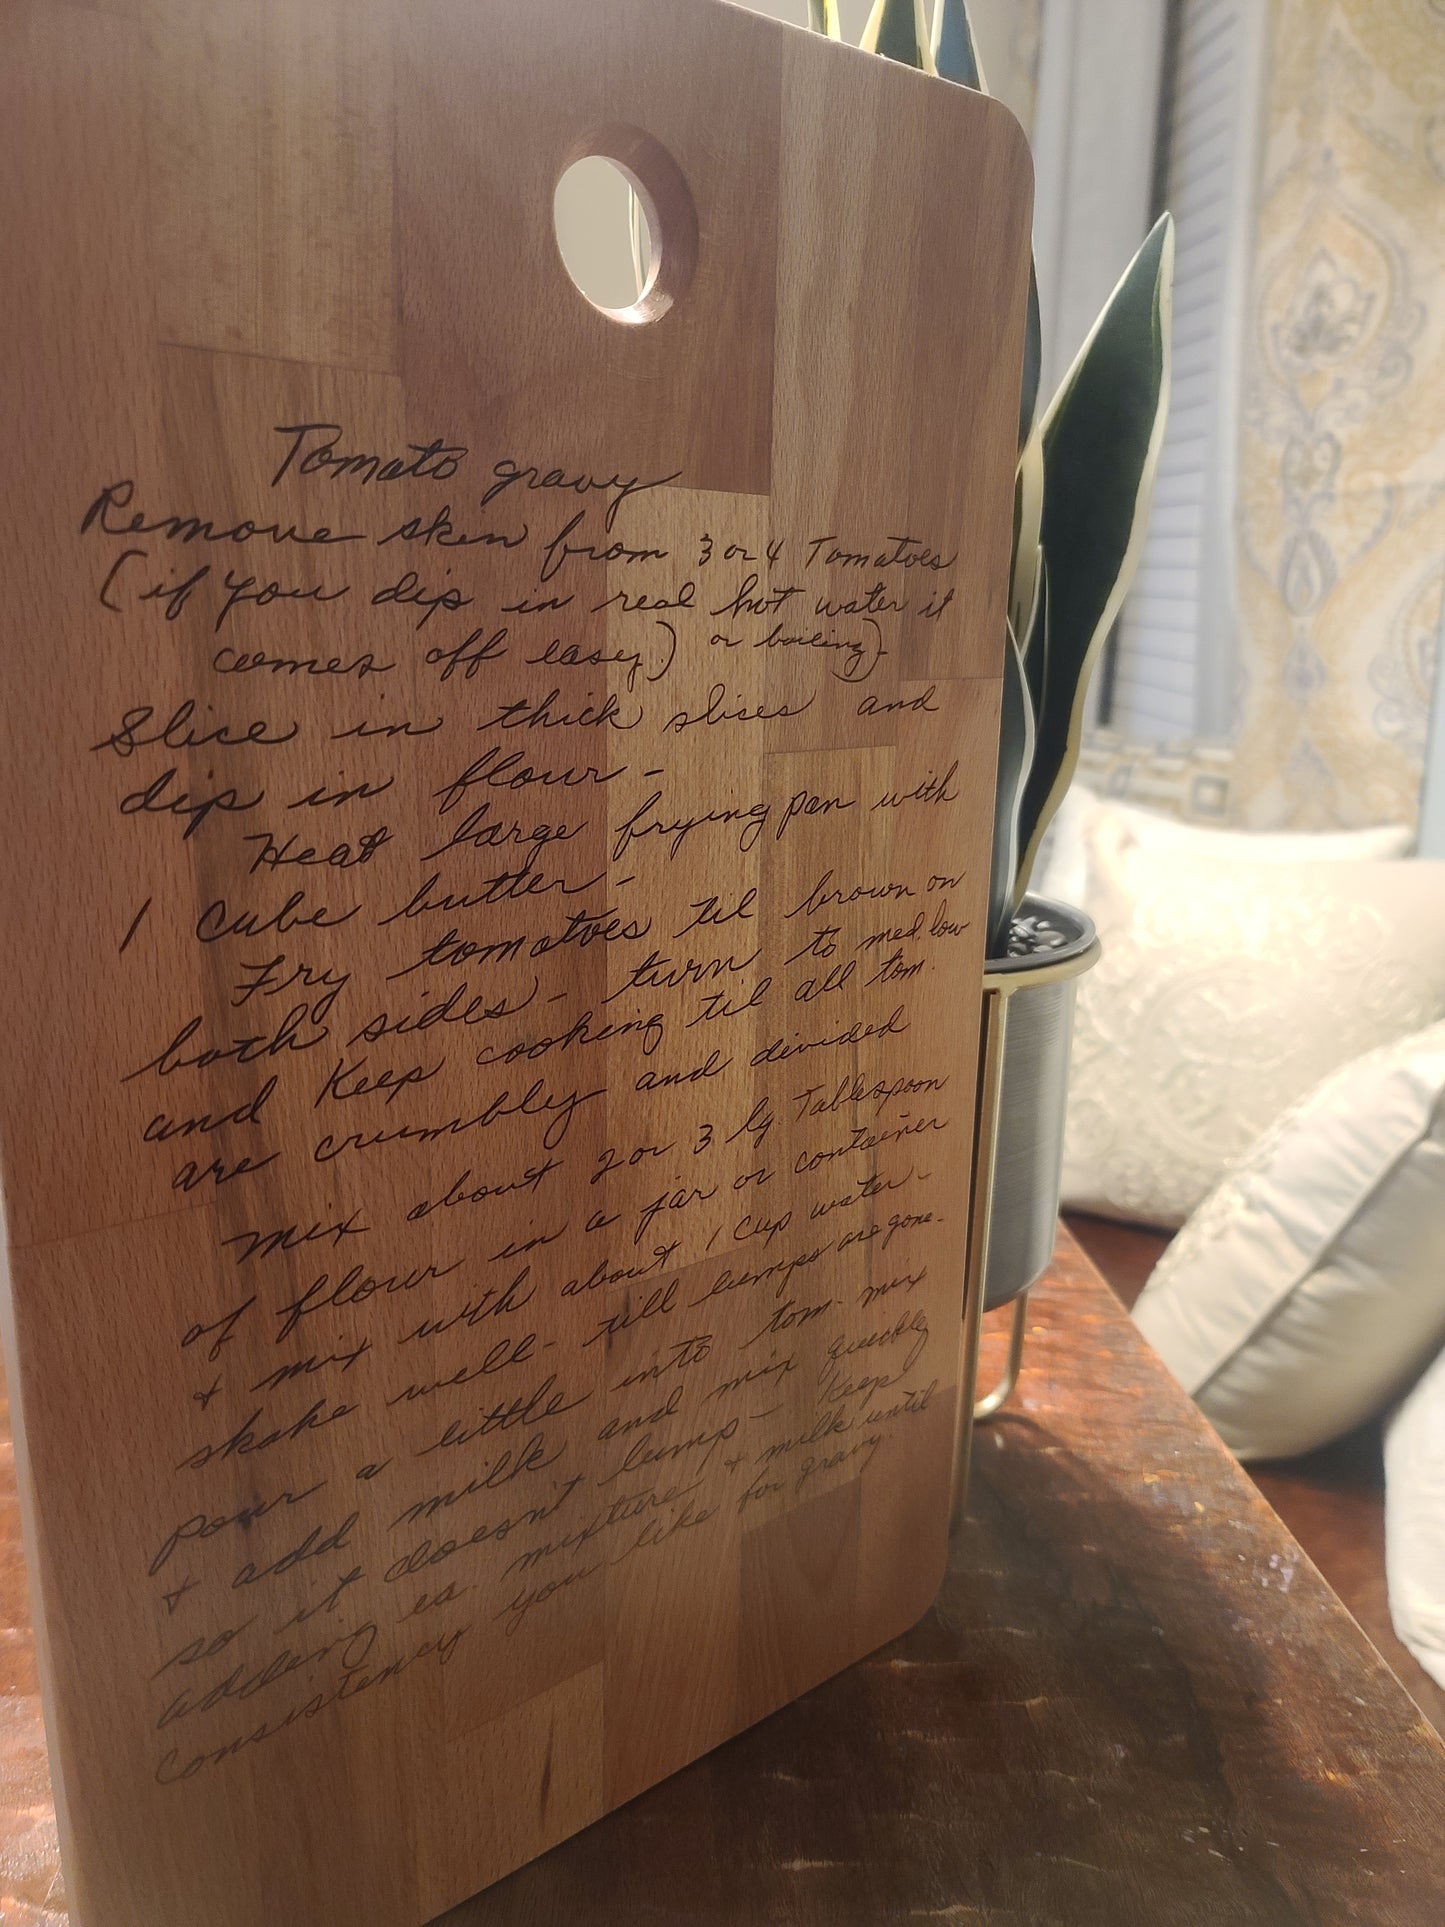 Tomato gravy
Remove skin from 3 or 4 Tomatoes
(if you dip in real hot water it
comes off easy.) or boiling)
Slice in thick slises and
dip in flour -
Heat large frying pan with
1 cube butter -
Fry tomatoes til brown on
both sides - turn to med. low
and keep cooking til all tom.
are crumbly and divided
Mix about 2 or 3 lg. Tablespoon
of flour in a jar or container
+ mix with about 1 cup water -
shake well - till lumps are gone.
pour a little into tom - mix
+ add milk and mix quickly
so it doesn't lump - Keep
adding ea. mixture + milk until
consistency you like for gravy.